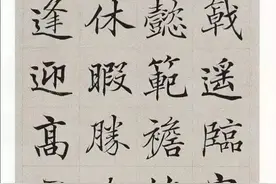 戟遥臨
懿範襜
休暇勝
逢迎高